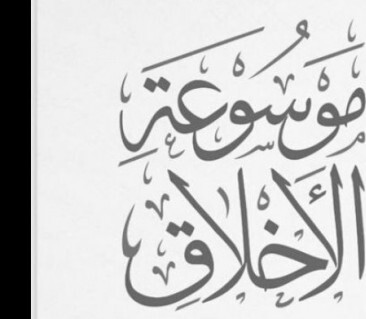 مَوْسُوْعَةِ
الأَخْلَاقِ